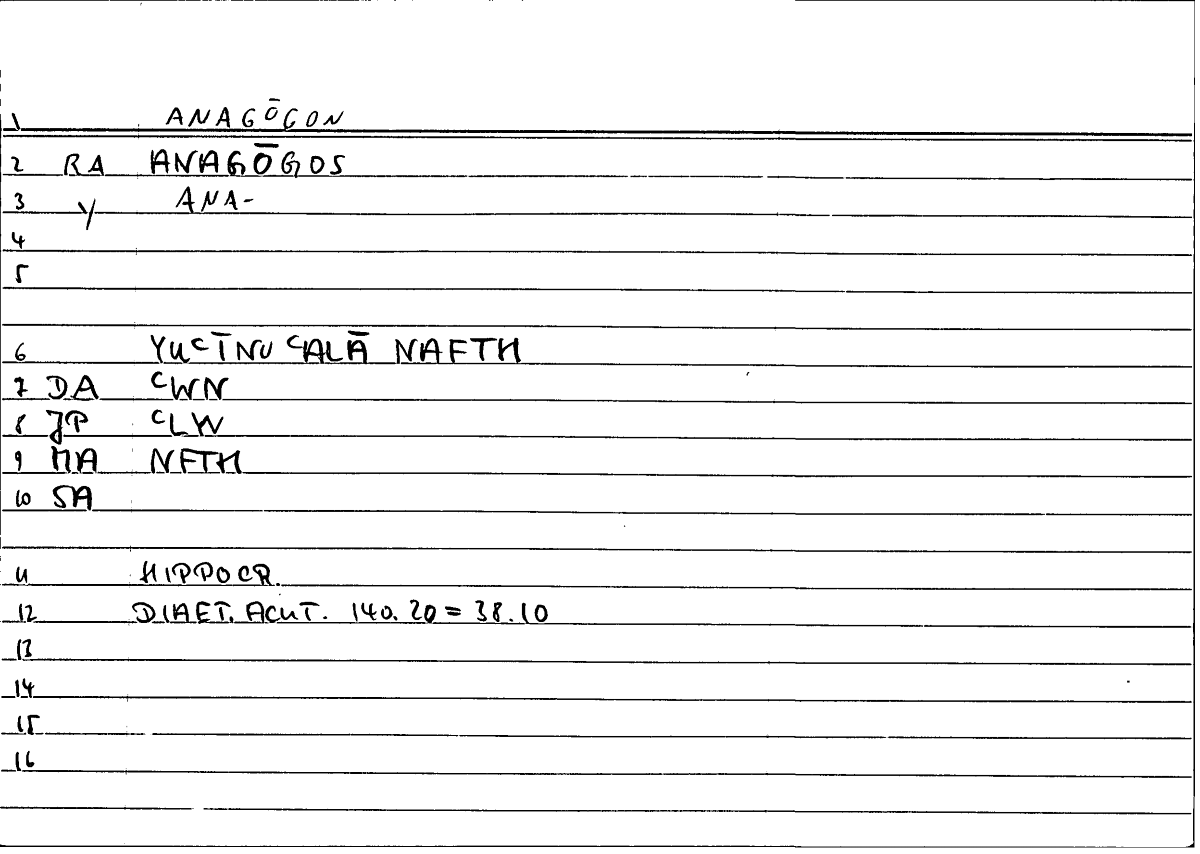 1 ANAGŌGON
2 RA ANAGŌGOS
3 Y ANA-
4
5
6 YUᶜĪNU ᶜALĀ NAFTH
7 DA ᶜWN
8 JP ᶜLW
9 MA NFTH
10 SA
11 HIPPOCR.
12 DIAET. ACUT. 140.20 = 38.10
13
14
15
16